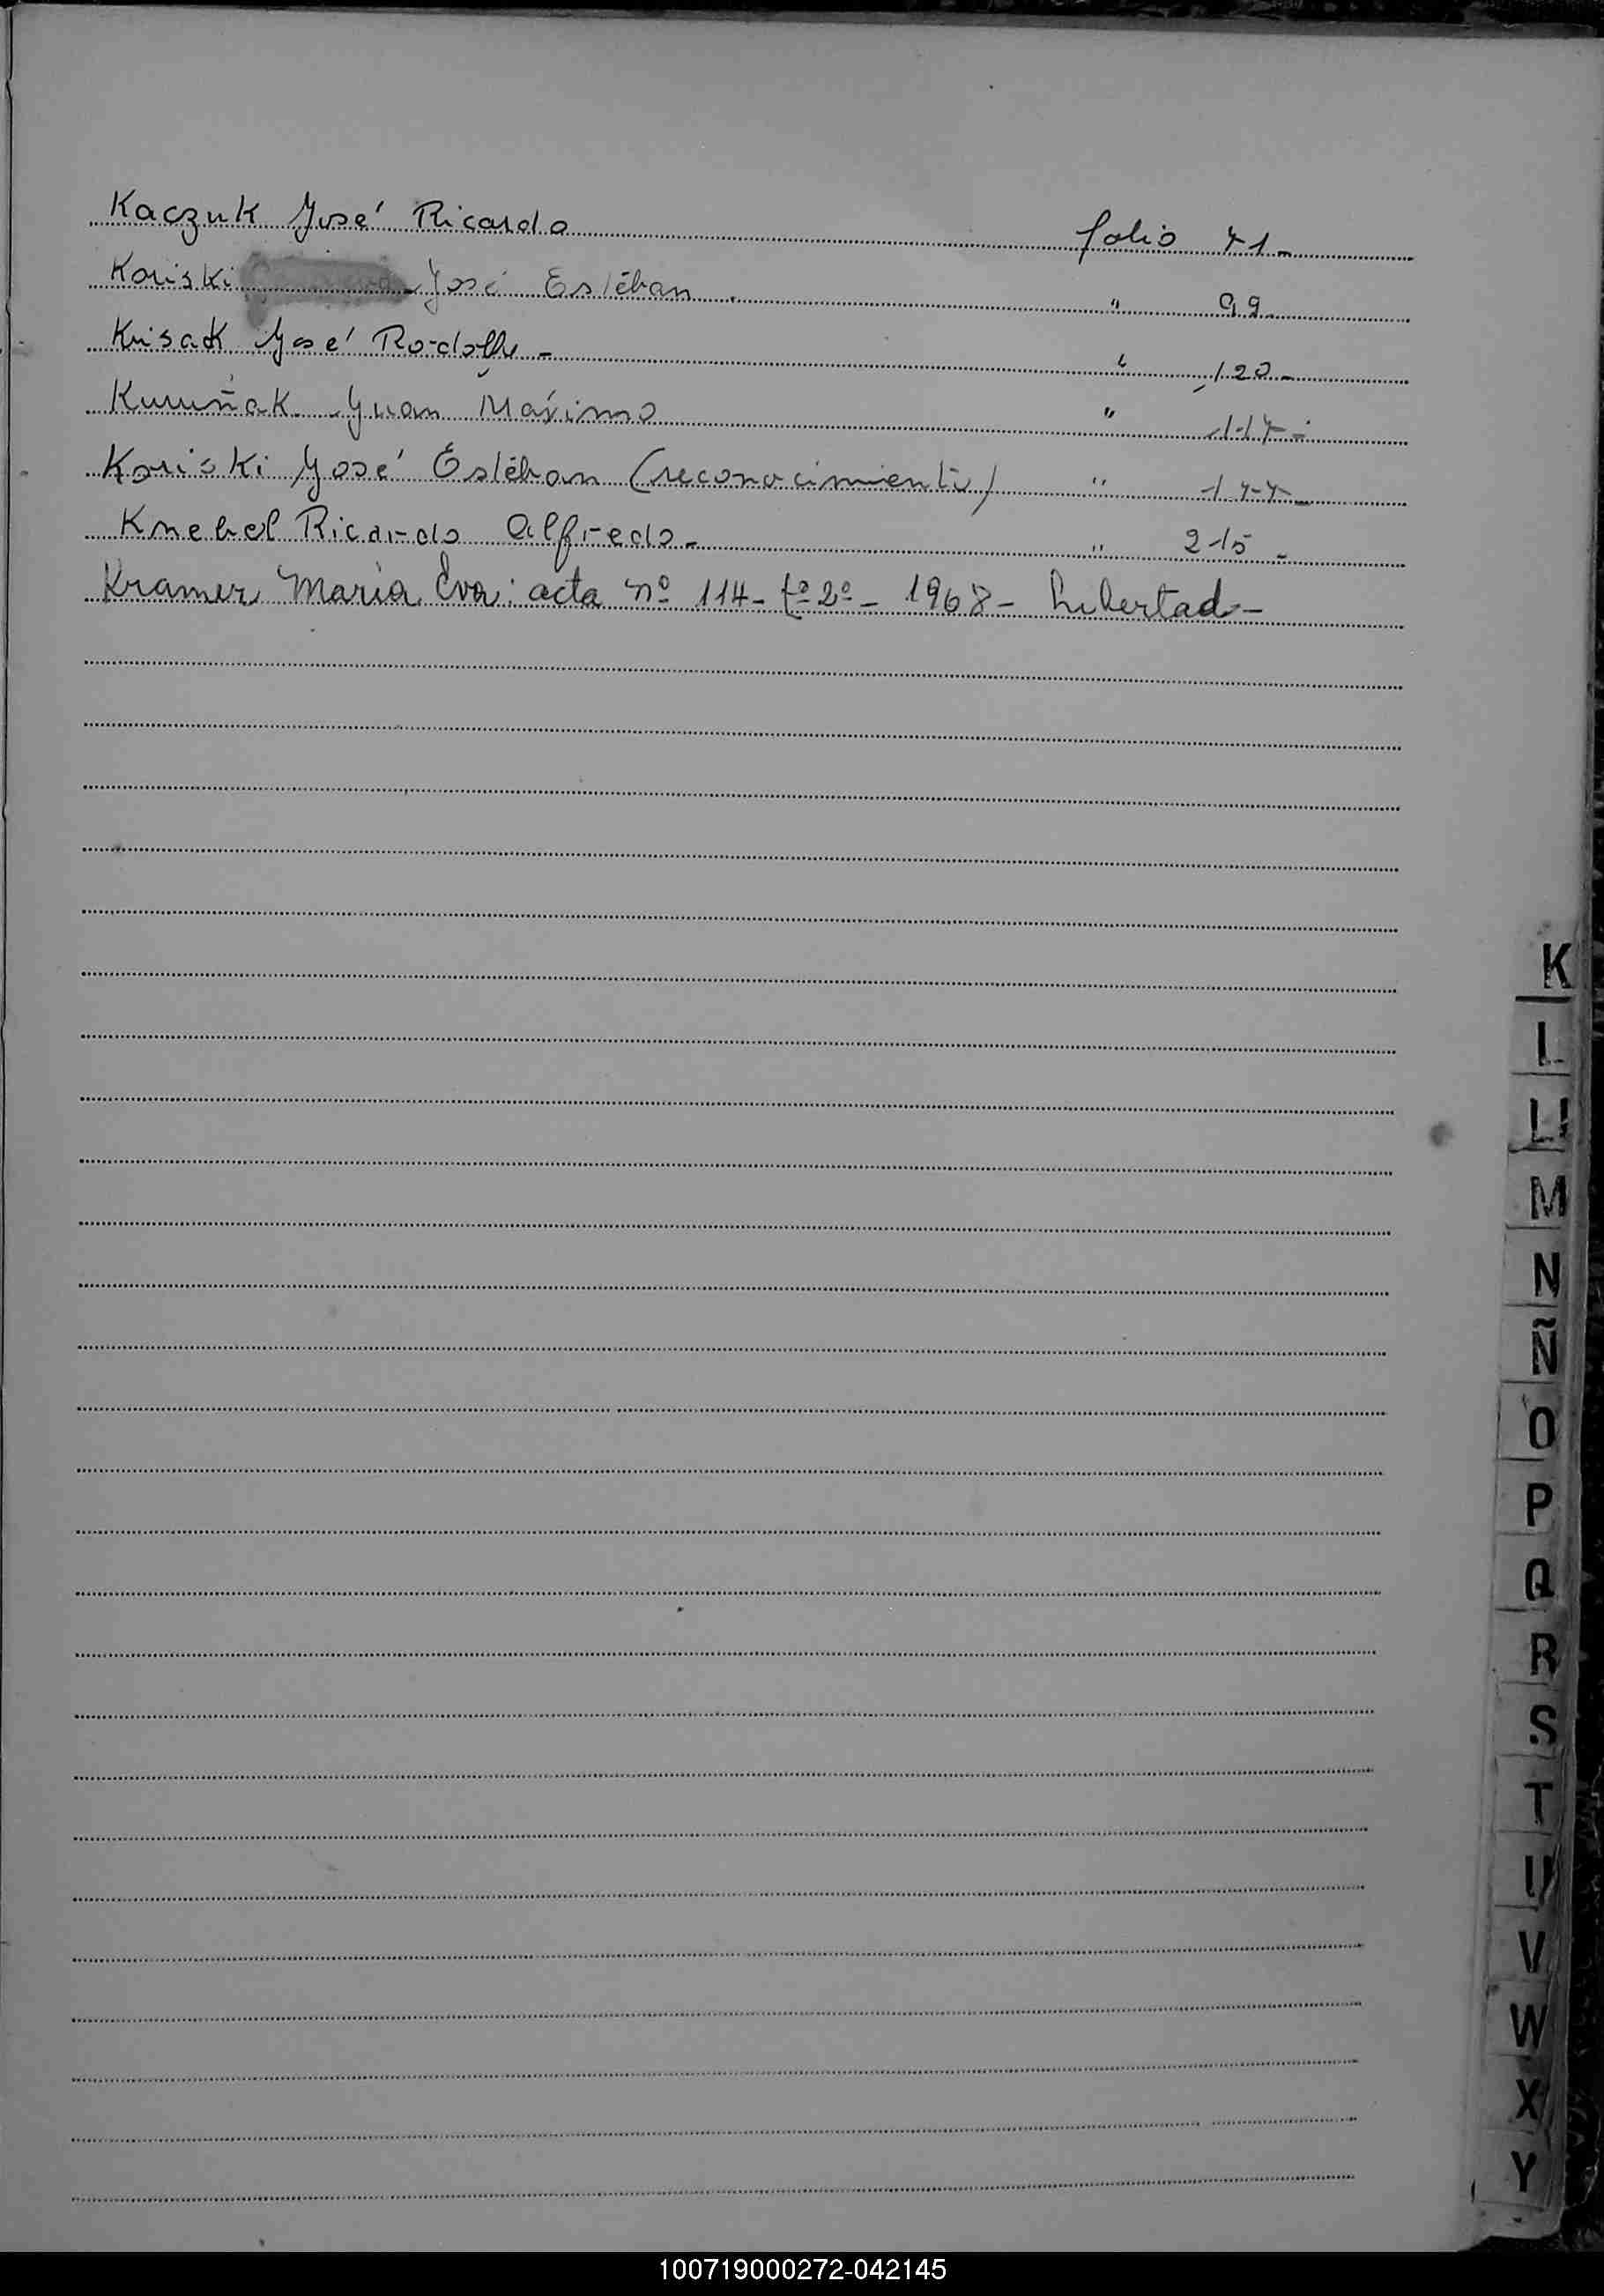 Kaczuk José Ricardo folio 71-
Koriski José Estéban. " 99-
Krisak José Rodolfo - " 120-
Kuruñak Juan Máximo " 117-
Koriski José Estéban (reconocimiento) " 177-
Knebel Ricardo Alfredo- " 215-
Kramer Maria Eva: acta nº 114- tº 2º- 1968- Libertad-
K
L
LL
M
N
Ñ
O
P
Q
R
S
T
U
V
W
X
Y
100719000272-042145